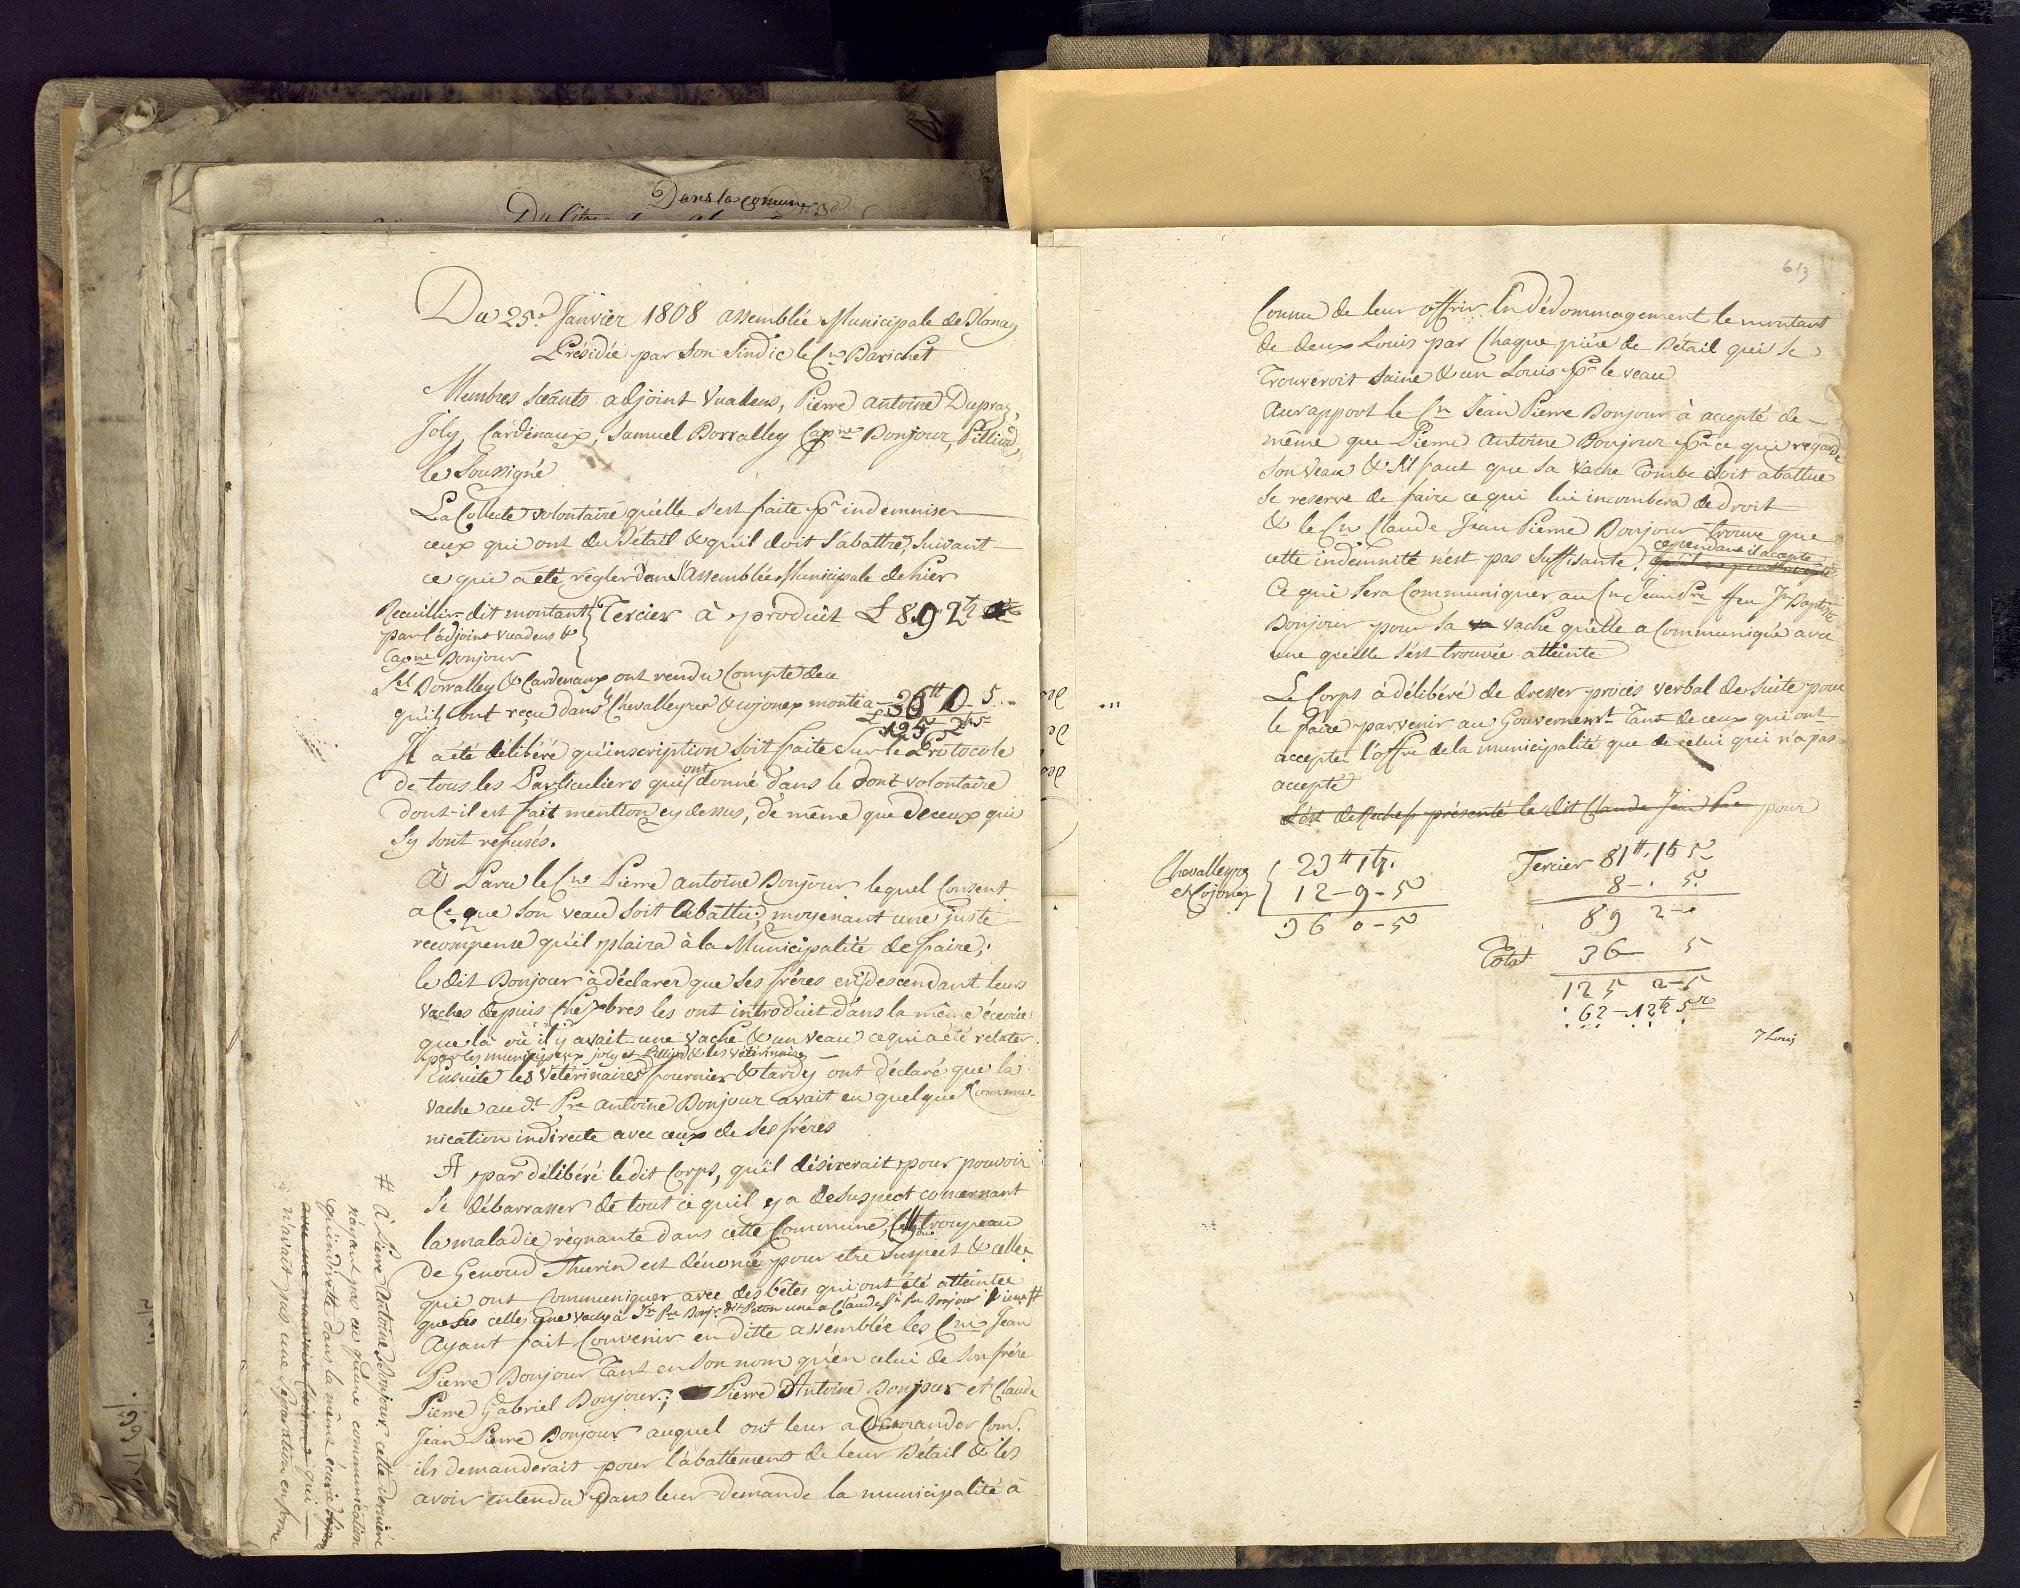 Dans la comune
Du 25.e Janvier 1808 assemblée Municipale de Blonay
Présidée par son Sindic le Cn Barichet
Membres Séants adjoint Vuadens, Pierre antoine Dupraz,
Joly, Cardinaux, Samuel Borralley Capne Bonjour, Pilliod,
le Soussigné
La Collecte volontaire qu'elle s'est faite pr indemniser
ceux qui ont du Bétail & qu'il doit s'abattre, Suivant
ce qui a été régler dans l'assemblée Municipale de hier
Recuillir dit montant par l'adjoint Vuadens & Capne Bonjour } Tercier à produit £ 89 2 ₶
Sel Borralley & Cardenaux ont rendu Compte de ce
qu'ils ont reçu dans Chevalleyres & Cojonex monté a 36 ₶ 0 5
£ 125 2 5
Il a été délibéré qu'inscription soit faite sur le Protocole
de tous les Particuliers qui ont donné dans le dont volontaire
dont il est fait mention cy dessus, de même que de ceux qui
s'y sont refusés.
A Paru le Cn Pierre antoine Bonjour lequel Consent
a Ce que son veau soit abattu, moyenant une juste
recompense qu'il plaira à la Municipalité de faire;
le dit Bonjour à déclarer que ses frères en descendant leurs
vaches depuis Chexbres les ont introduit dans la même écurie
que là où il y avait une vache & un veau ce qui a été relater
par les municipaux joly et Pilliod & les vétérinaires
Ensuite les vétérinaires fournier & tardy ont déclaré que la
vache au dt Pre antoine Bonjour avait eu quelque Commu-
nication indirecte avec ceux de ses frères
A par délibéré le dit Corps, qu'il désirerait pour pouvoir
se débarrasser de tout ce qu'il y a de suspect concernant
la maladie régnante dans cette Commune, le troupeau
de Genoud Thurin est dénoncé pour etre suspect & celles
qui ont Communiquer avec des bêtes qui ont été atteintes
que les celles une vache à Jn Pre Bonjr dit Peton une a Claude Jn Pre Bonjour #
Ayant fait Convenir en ditte assemblée les Cns Jean
Pierre Bonjour Tant en son nom qu'en celui de son frère
Pierre Gabriel Bonjour; Pierre Antoine Bonjour et Claude
Jean Pierre Bonjour auquel ont leur a demander Com.
ils demanderait pour l'abattement de leur Bétail & les
avoir entendu dans leur demande la municipalité à
# à Pierre Antoine Bonjour cette dernière
n'ayant pas eu qu'une communication
qu'indirette dans la même écurie
qui
n'avait pas une séparation en forme
613
Connu de leur offrir En dédommagement le montant
de deux Louis par Chaque pièce de Bétail qui se
Trouveroit saine & un Louis pr le veau
Au rapport le Cn Jean Pierre Bonjour à accepté de
même que Pierre Antoine Bonjour pr ce qui regarde
son veau & s'il faut que sa vache Tombe soit abattue
se reserve de faire ce qui lui incombera de droit
& le Cn Claude Jean Pierre Bonjour trouve que
cette indemnité n'est pas suffisante, cependant il accepte
Ce qui sera Communiquer au Cn Jean Pre ffeu Jn Baptiste
Bonjour pour sa vache qu'elle a Communiqué avec
une qu'elle s'est trouvée atteinte
Le Corps à délibéré de dresser procès verbal de suite pour
le faire parvenir au Gouvernemt Tant de ceux qui ont
accepter l'offre de la municipalité que de celui qui n'a pas
accepté
S'est de Rechef présenté le dit Claude Jean Pre pour
Chevalleyres et Cojonex { 23 ₶ 1 ₶.
12 - 9 - 5
36 0 - 5
Tercier 81 ₶. 1 5
8 - . 5
89 2 - .
Total 36 - 5
125 2 - 5
62 - 12 5
7 Louis